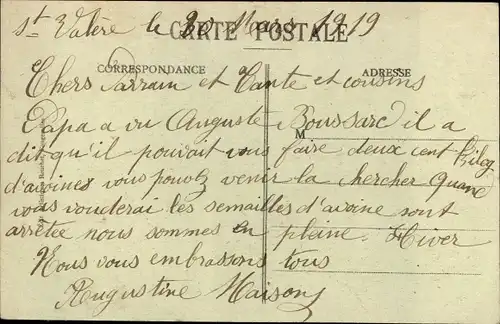 St Valère le 30 Mars 1919
CARTE POSTALE
CORRESPONDANCE
ADRESSE
Chers Parrain et Tante et cousins
Papa a vu Auguste Boussard il a
M
dit qu'il pouvait vous faire deux cent kilog
d'avoines vous pouvez venir la chercher quand
vous vouderai les semailles d'avoine sont
arrêtée nous sommes en pleine Hiver
Nous vous embrassons tous
Augustine Maison